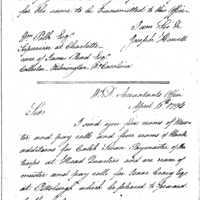 for his name to be transmitted to this Office
I am Sir &c
Joseph Howell
Wm Polk Esq
Supervisor at Charlotte
care of James Read Esq
Collector, Wilmington, N Carolina
W.D. Accountants Office
April 8th 1794
Sir
I send you five reams of Mus-
ter and pay rolls and five reams of blank
additions for Caleb Swan Paymaster of the
troops at Head Quarters and one ream of
muster and pay rolls for Isaac Craig Esq
at Pittsburgh which be pleased to forward